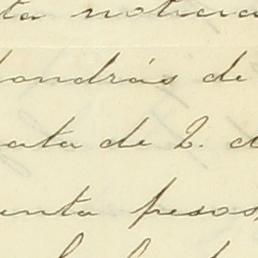 ta noticia
ondrás de
ata de 2. d
enta pesos,